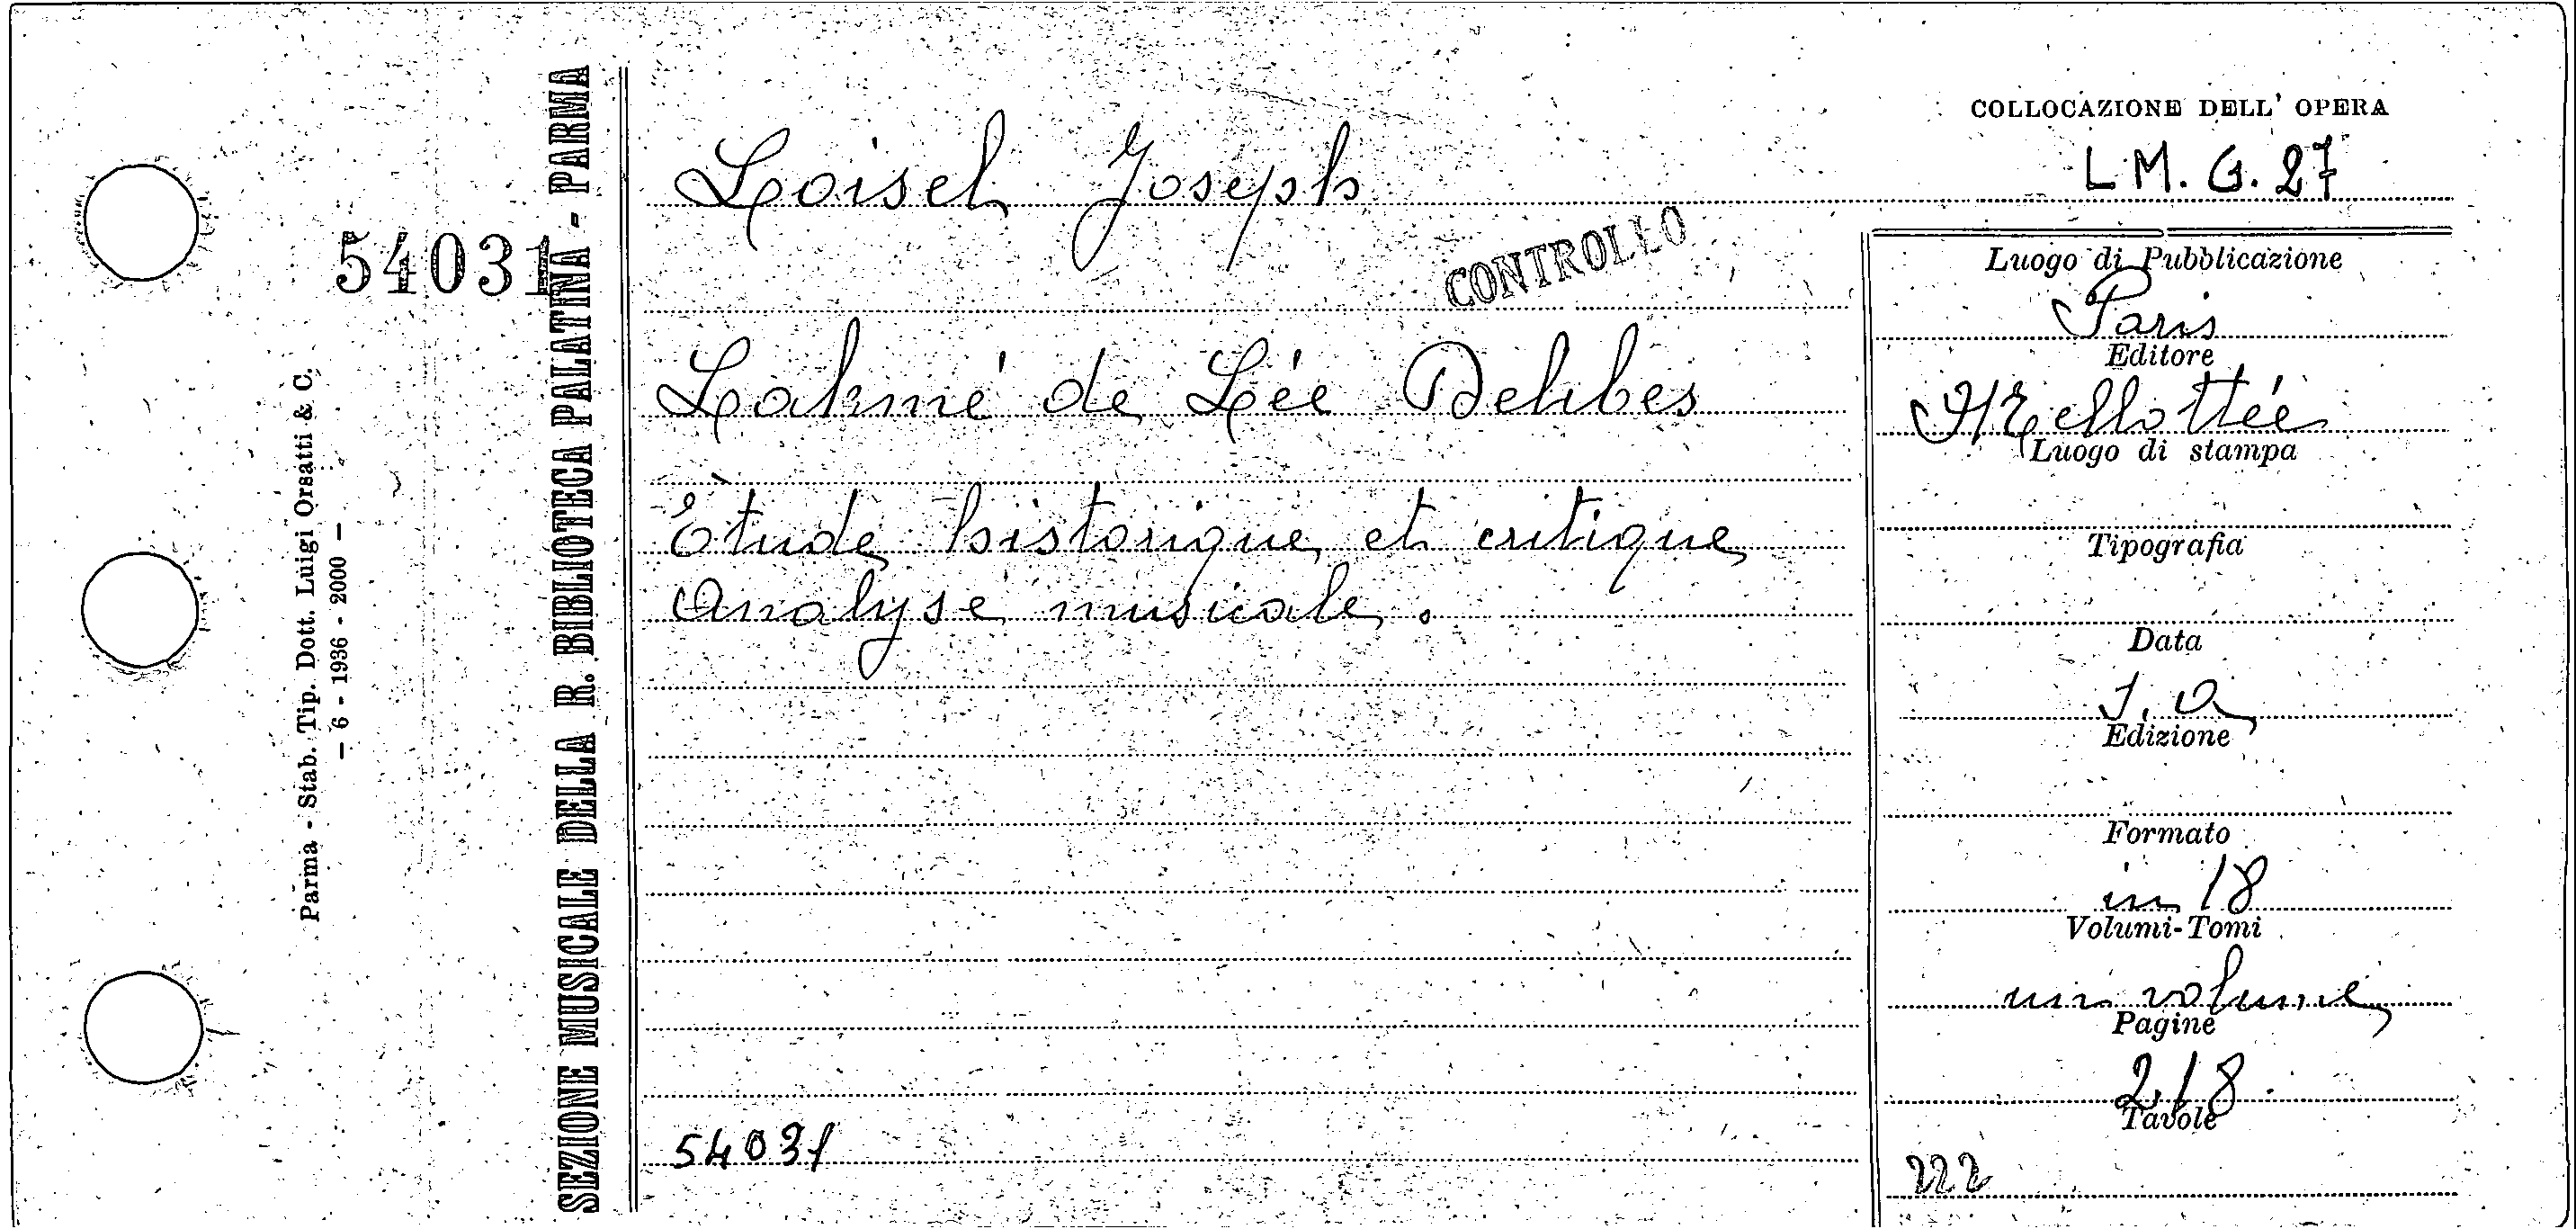 COLLOCAZIONE DELL' OPERA
L.M. G. 27
Loisel Joseph
54031
CONTROLLO
Lakmé de Lée Delibes
Étude historique et critique
Analyse musicale.
54031
Luogo di Pubblicazione
Paris
Editore
Mellottée
Luogo di stampa
Tipografia
Data
s. a
Edizione
Formato
in 18
Volumi-Tomi
un volume
Pagine
218
Tavole
222
SEZIONE MUSICALE DELLA R. BIBLIOTECA PALATINA - PARMA
Parma - Stab. Tip. Dott. Luigi Orsatti & C.
- 6 - 1936 - 2000 -